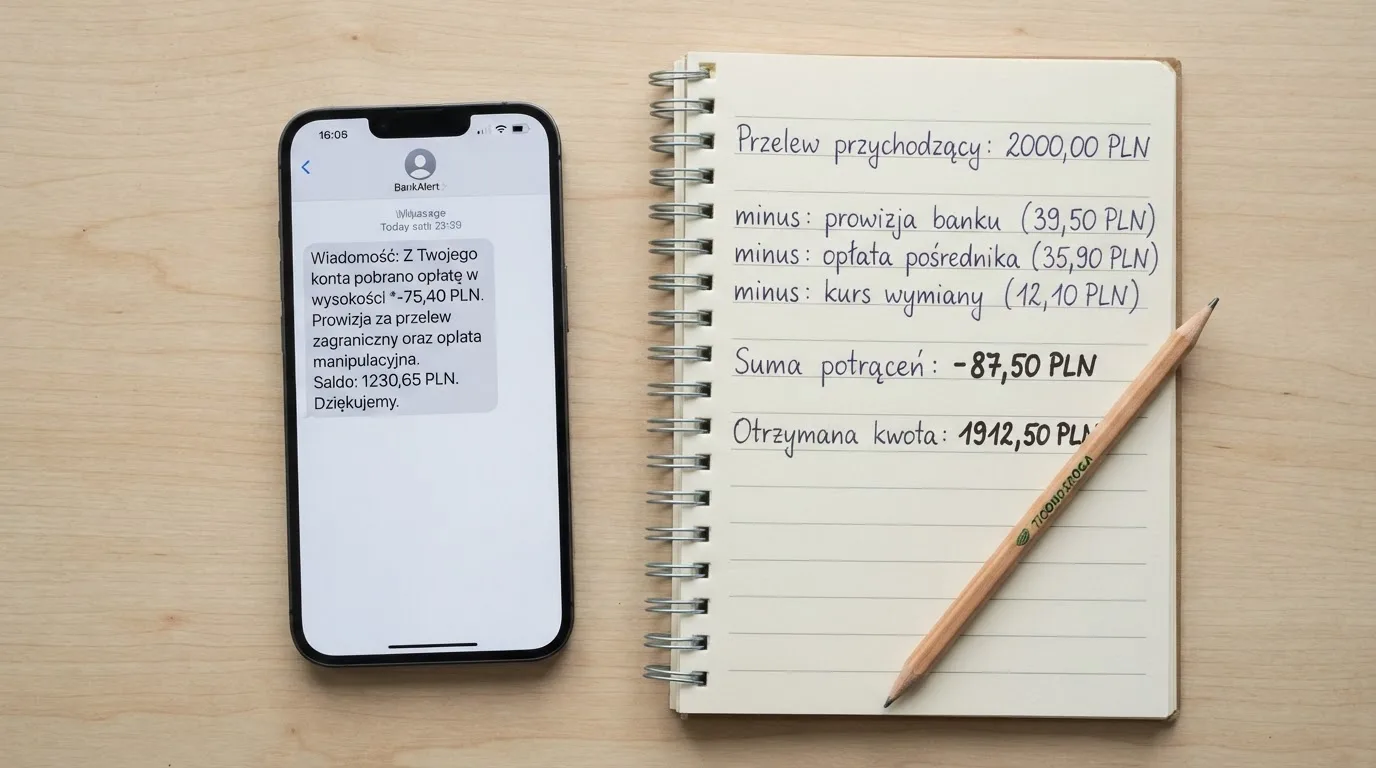 16:06
BankAlert
Today 23:39
Wiadomość: Z Twojego
konta pobrano opłatę w
wysokości *-75,40 PLN.
Prowizja za przelew
zagraniczny oraz oplata
manipulacyjna.
Saldo: 1230,65 PLN.
Dziękujemy.
Przelew przychodzący: 2000,00 PLN
minus: prowizja banku (39,50 PLN)
minus: opłata pośrednika (35,90 PLN)
minus: kurs wymiany (12,10 PLN)
Suma potrąceń: -87,50 PLN
Otrzymana kwota: 1912,50 PLN